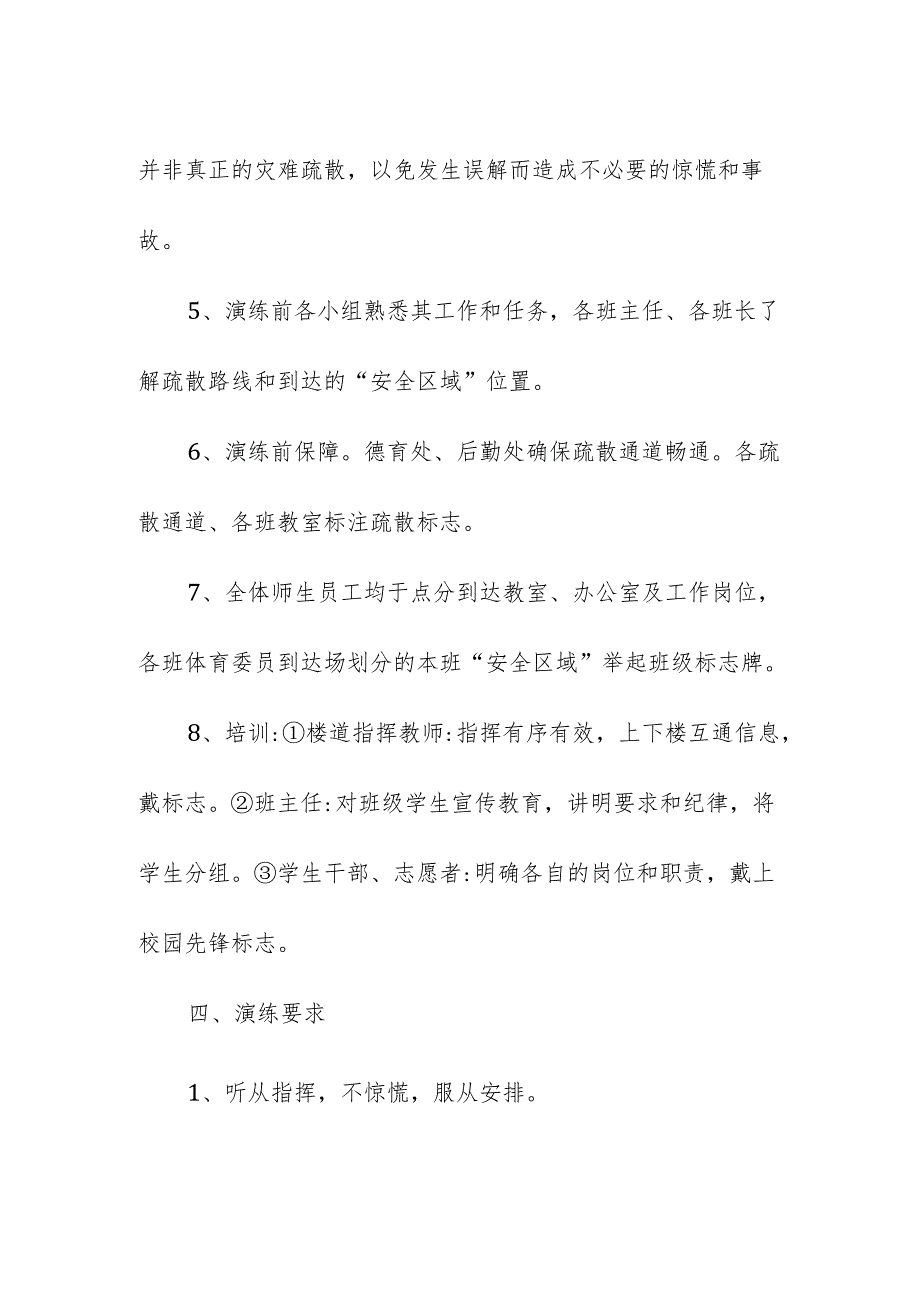 并非真正的灾难疏散，以免发生误解而造成不必要的惊慌和事
故。
5、演练前各小组熟悉其工作和任务，各班主任、各班长了
解疏散路线和到达的“安全区域”位置。
6、演练前保障。德育处、后勤处确保疏散通道畅通。各疏
散通道、各班教室标注疏散标志。
7、全体师生员工均于点分到达教室、办公室及工作岗位，
各班体育委员到达场划分的本班“安全区域”举起班级标志牌。
8、培训:①楼道指挥教师:指挥有序有效，上下楼互通信息，
戴标志。②班主任:对班级学生宣传教育，讲明要求和纪律，将
学生分组。③学生干部、志愿者:明确各自的岗位和职责，戴上
校园先锋标志。
四、演练要求
1、听从指挥，不惊慌，服从安排。